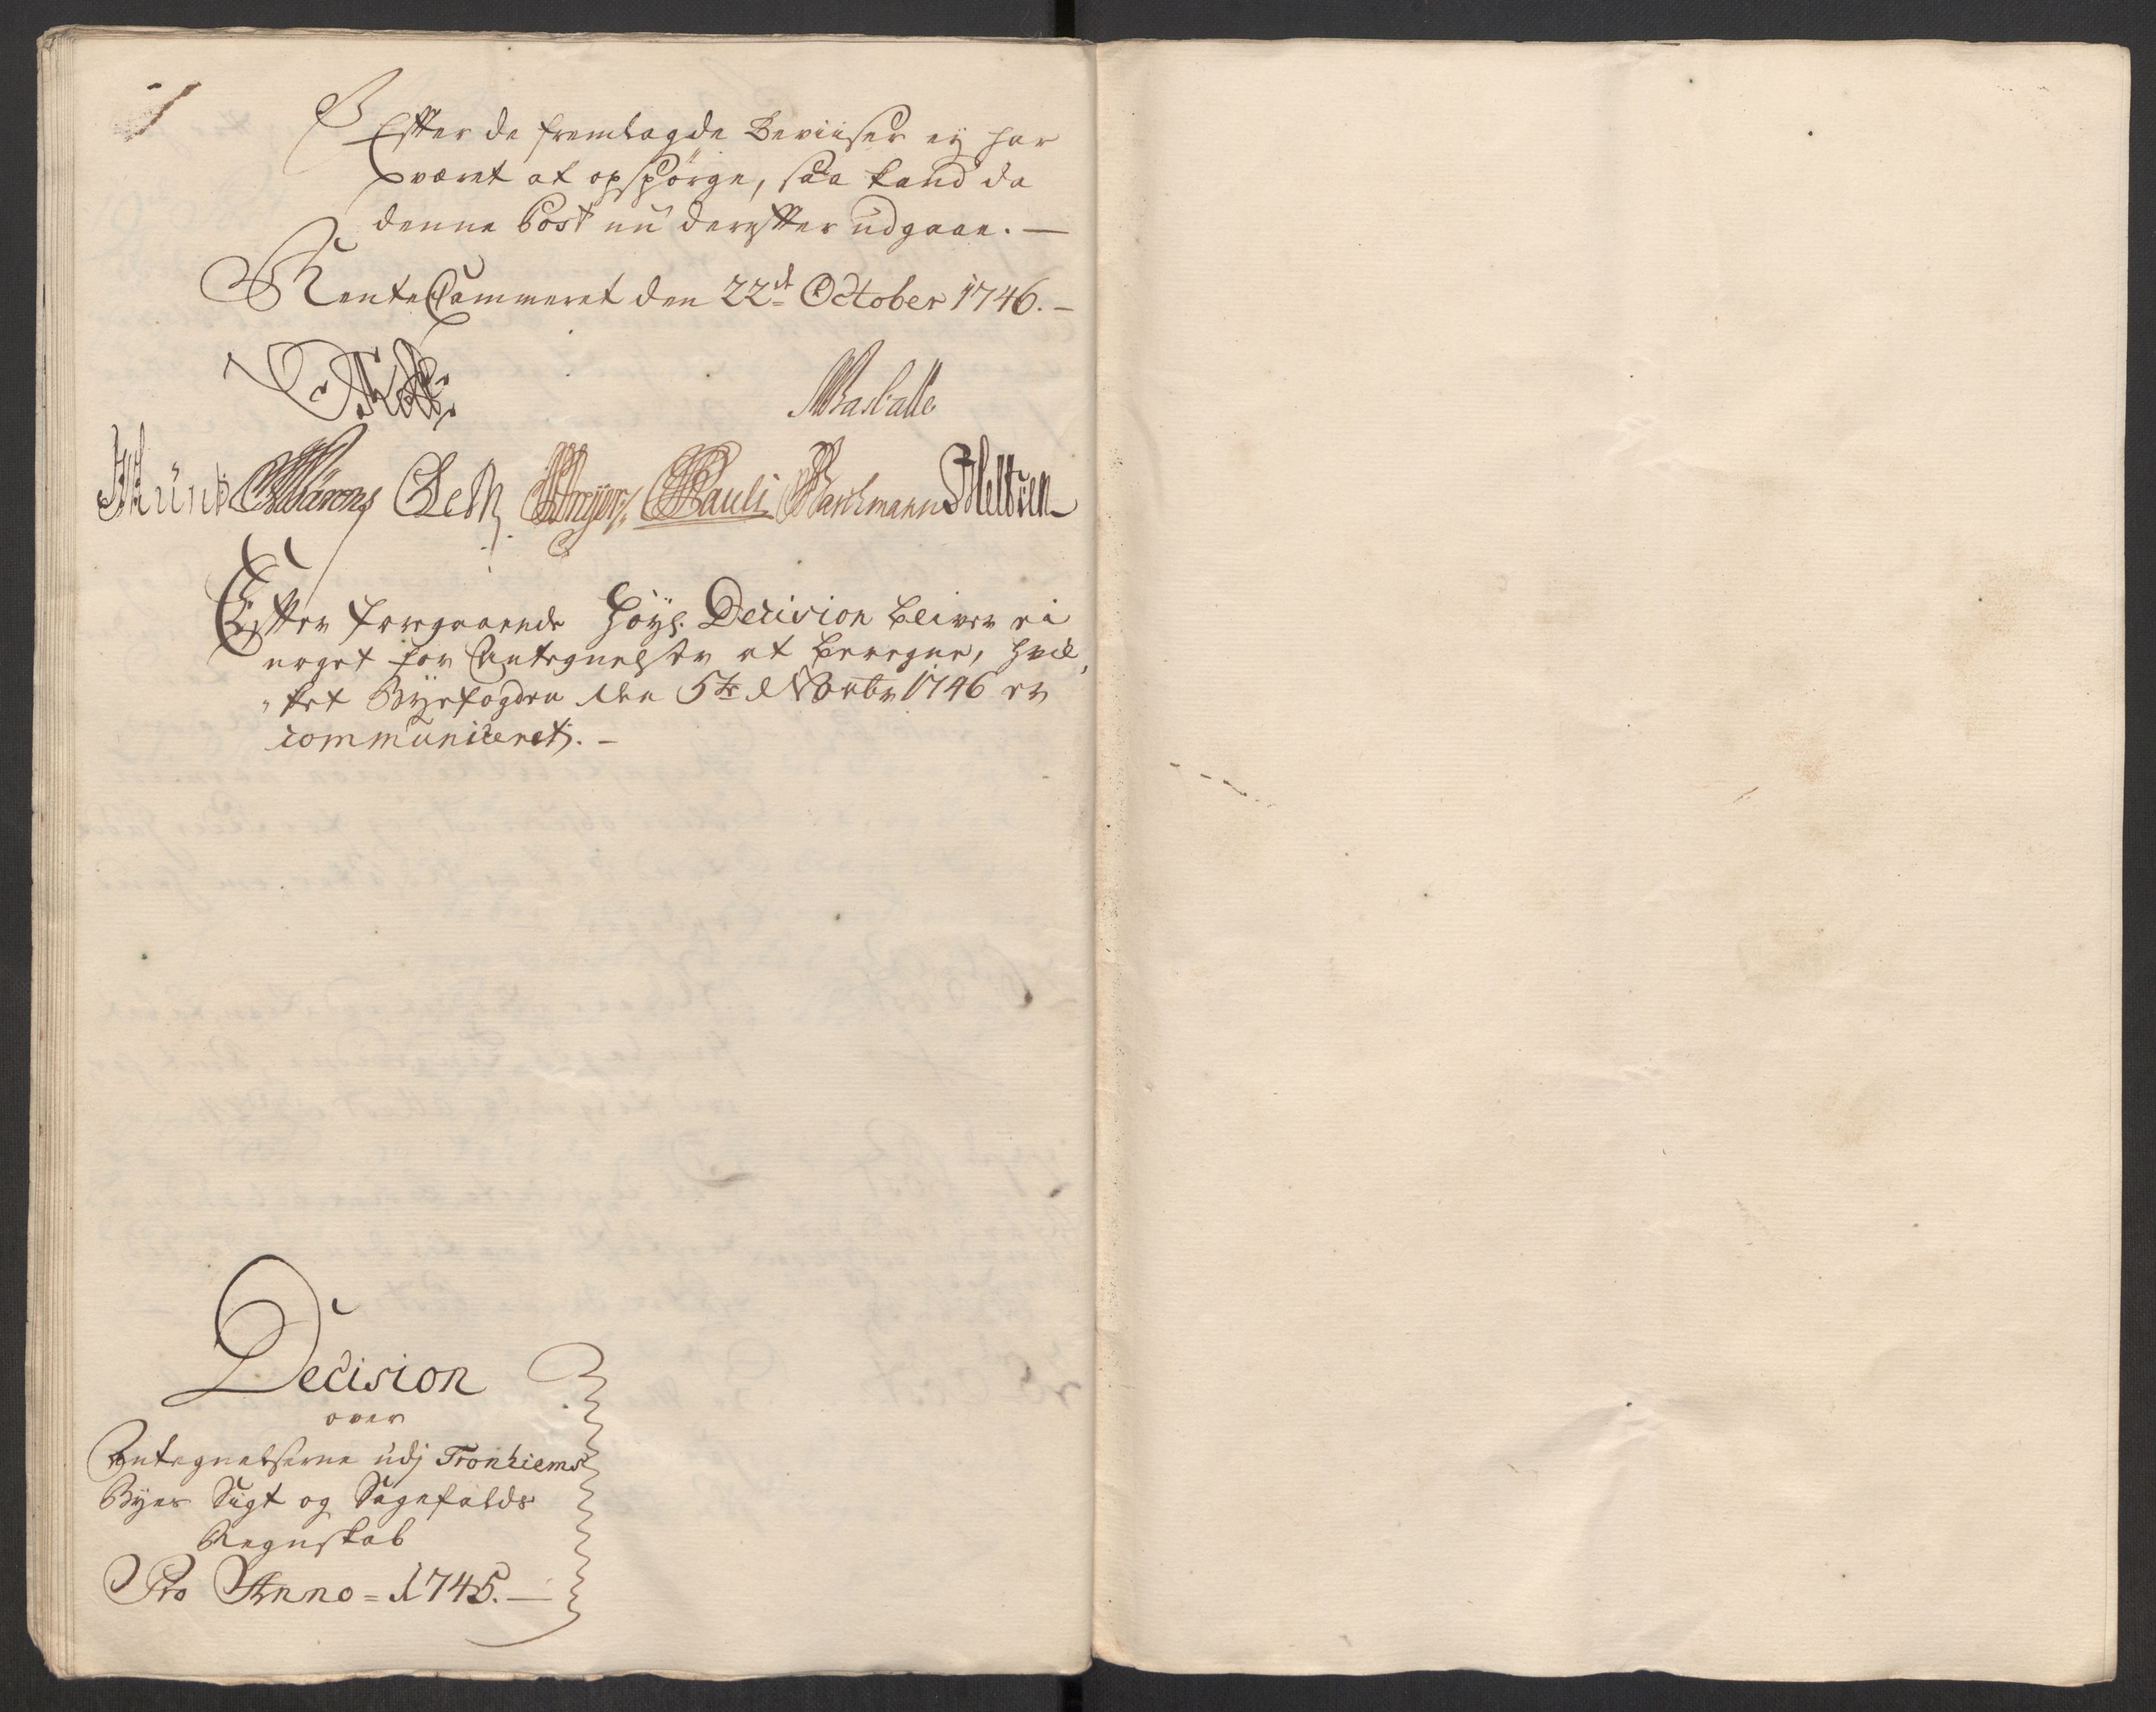 Efter de fremlagde Beviiser ey har
været at opspörge, saa kand da
denne Post nu derefter udgaae. —
RenteCammeret den 22de October 1746. —
Rasballe
Münk Pauli
Efter foregaaende höyl. Decision bliver ei
noget for Antegnelsen at beregne, hvil,
"ket Byefogden den 5te Novbr 1746 er
communiceret. —
Decision
over
Antegnelserne udj Tronhiems
Byes Sigt og Sagefalds
Regnskab
Pro Anno = 1745. —